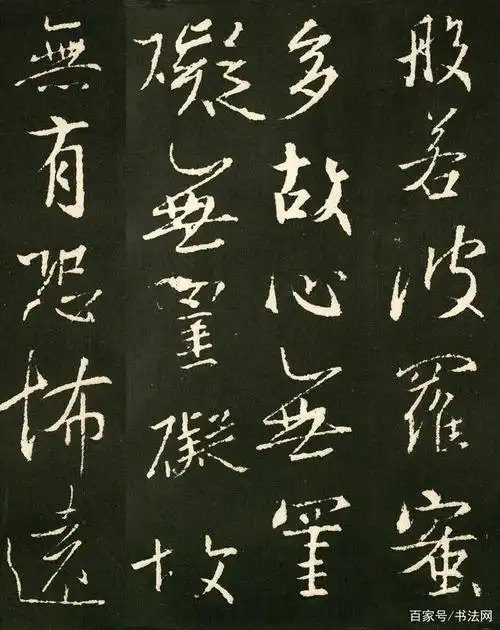 般若波羅蜜
多故心無罣
礙無罣礙故
無有恐怖遠
百家号/书法网